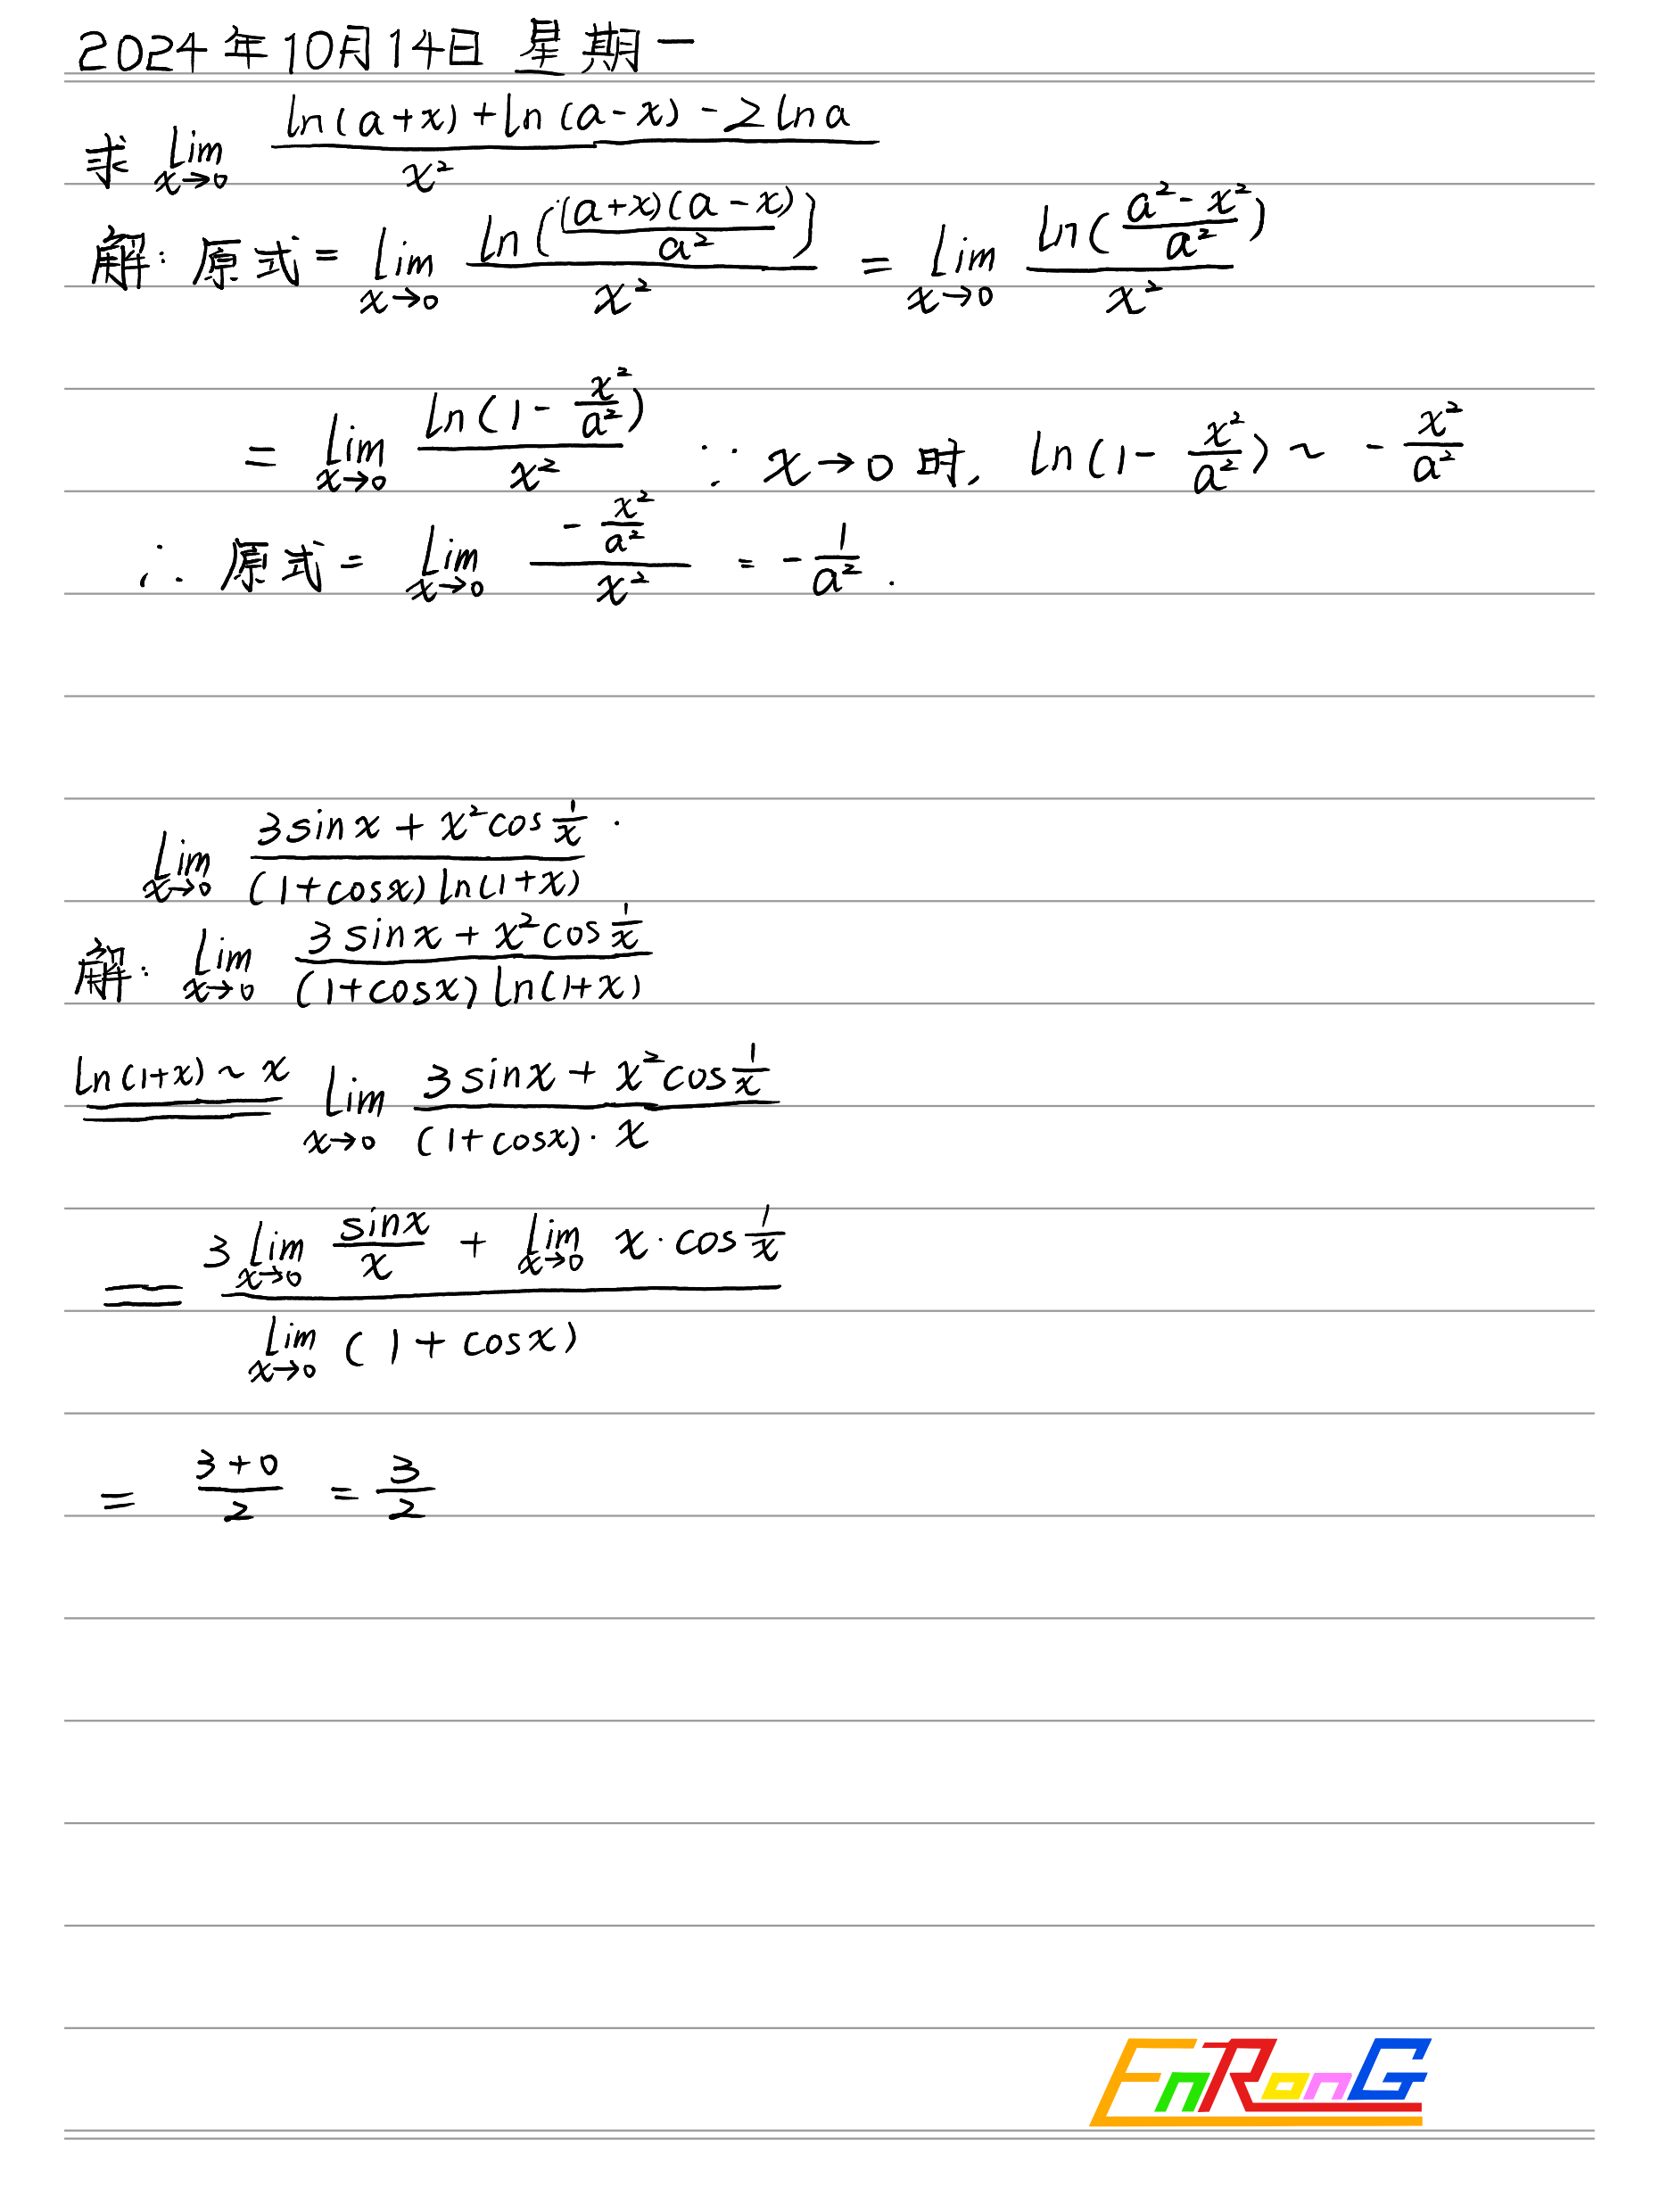 2024年10月14日 星期一
求 lim x→0 (ln(a+x)+ln(a-x)-2lna)/x²
解: 原式= lim x→0 ln[((a+x)(a-x))/a²]/x² = lim x→0 ln((a²-x²)/a²)/x²
= lim x→0 ln(1-x²/a²)/x² ∵ x→0时, ln(1-x²/a²)~ -x²/a²
∴ 原式= lim x→0 (-x²/a²)/x² = -1/a².
lim x→0 (3sinx+x²cos 1/x)/((1+cosx)ln(1+x)).
解: lim x→0 (3sinx+x²cos 1/x)/((1+cosx)ln(1+x))
ln(1+x)~x == lim x→0 (3sinx+x²cos 1/x)/((1+cosx)·x)
= (3 lim x→0 sinx/x + lim x→0 x·cos 1/x)/(lim x→0 (1+cosx))
= (3+0)/2 = 3/2
EnRonG